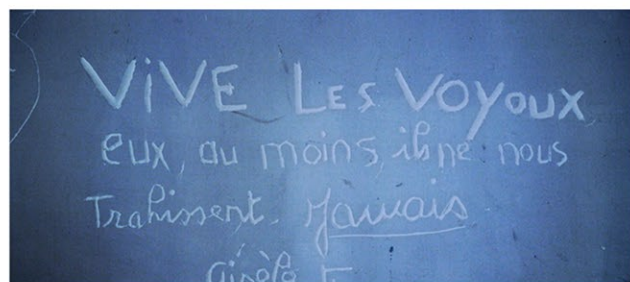 ViVE LES VOYOUX
eux, au moins, ils ne nous
Trahissent Jamais
Gisèle F